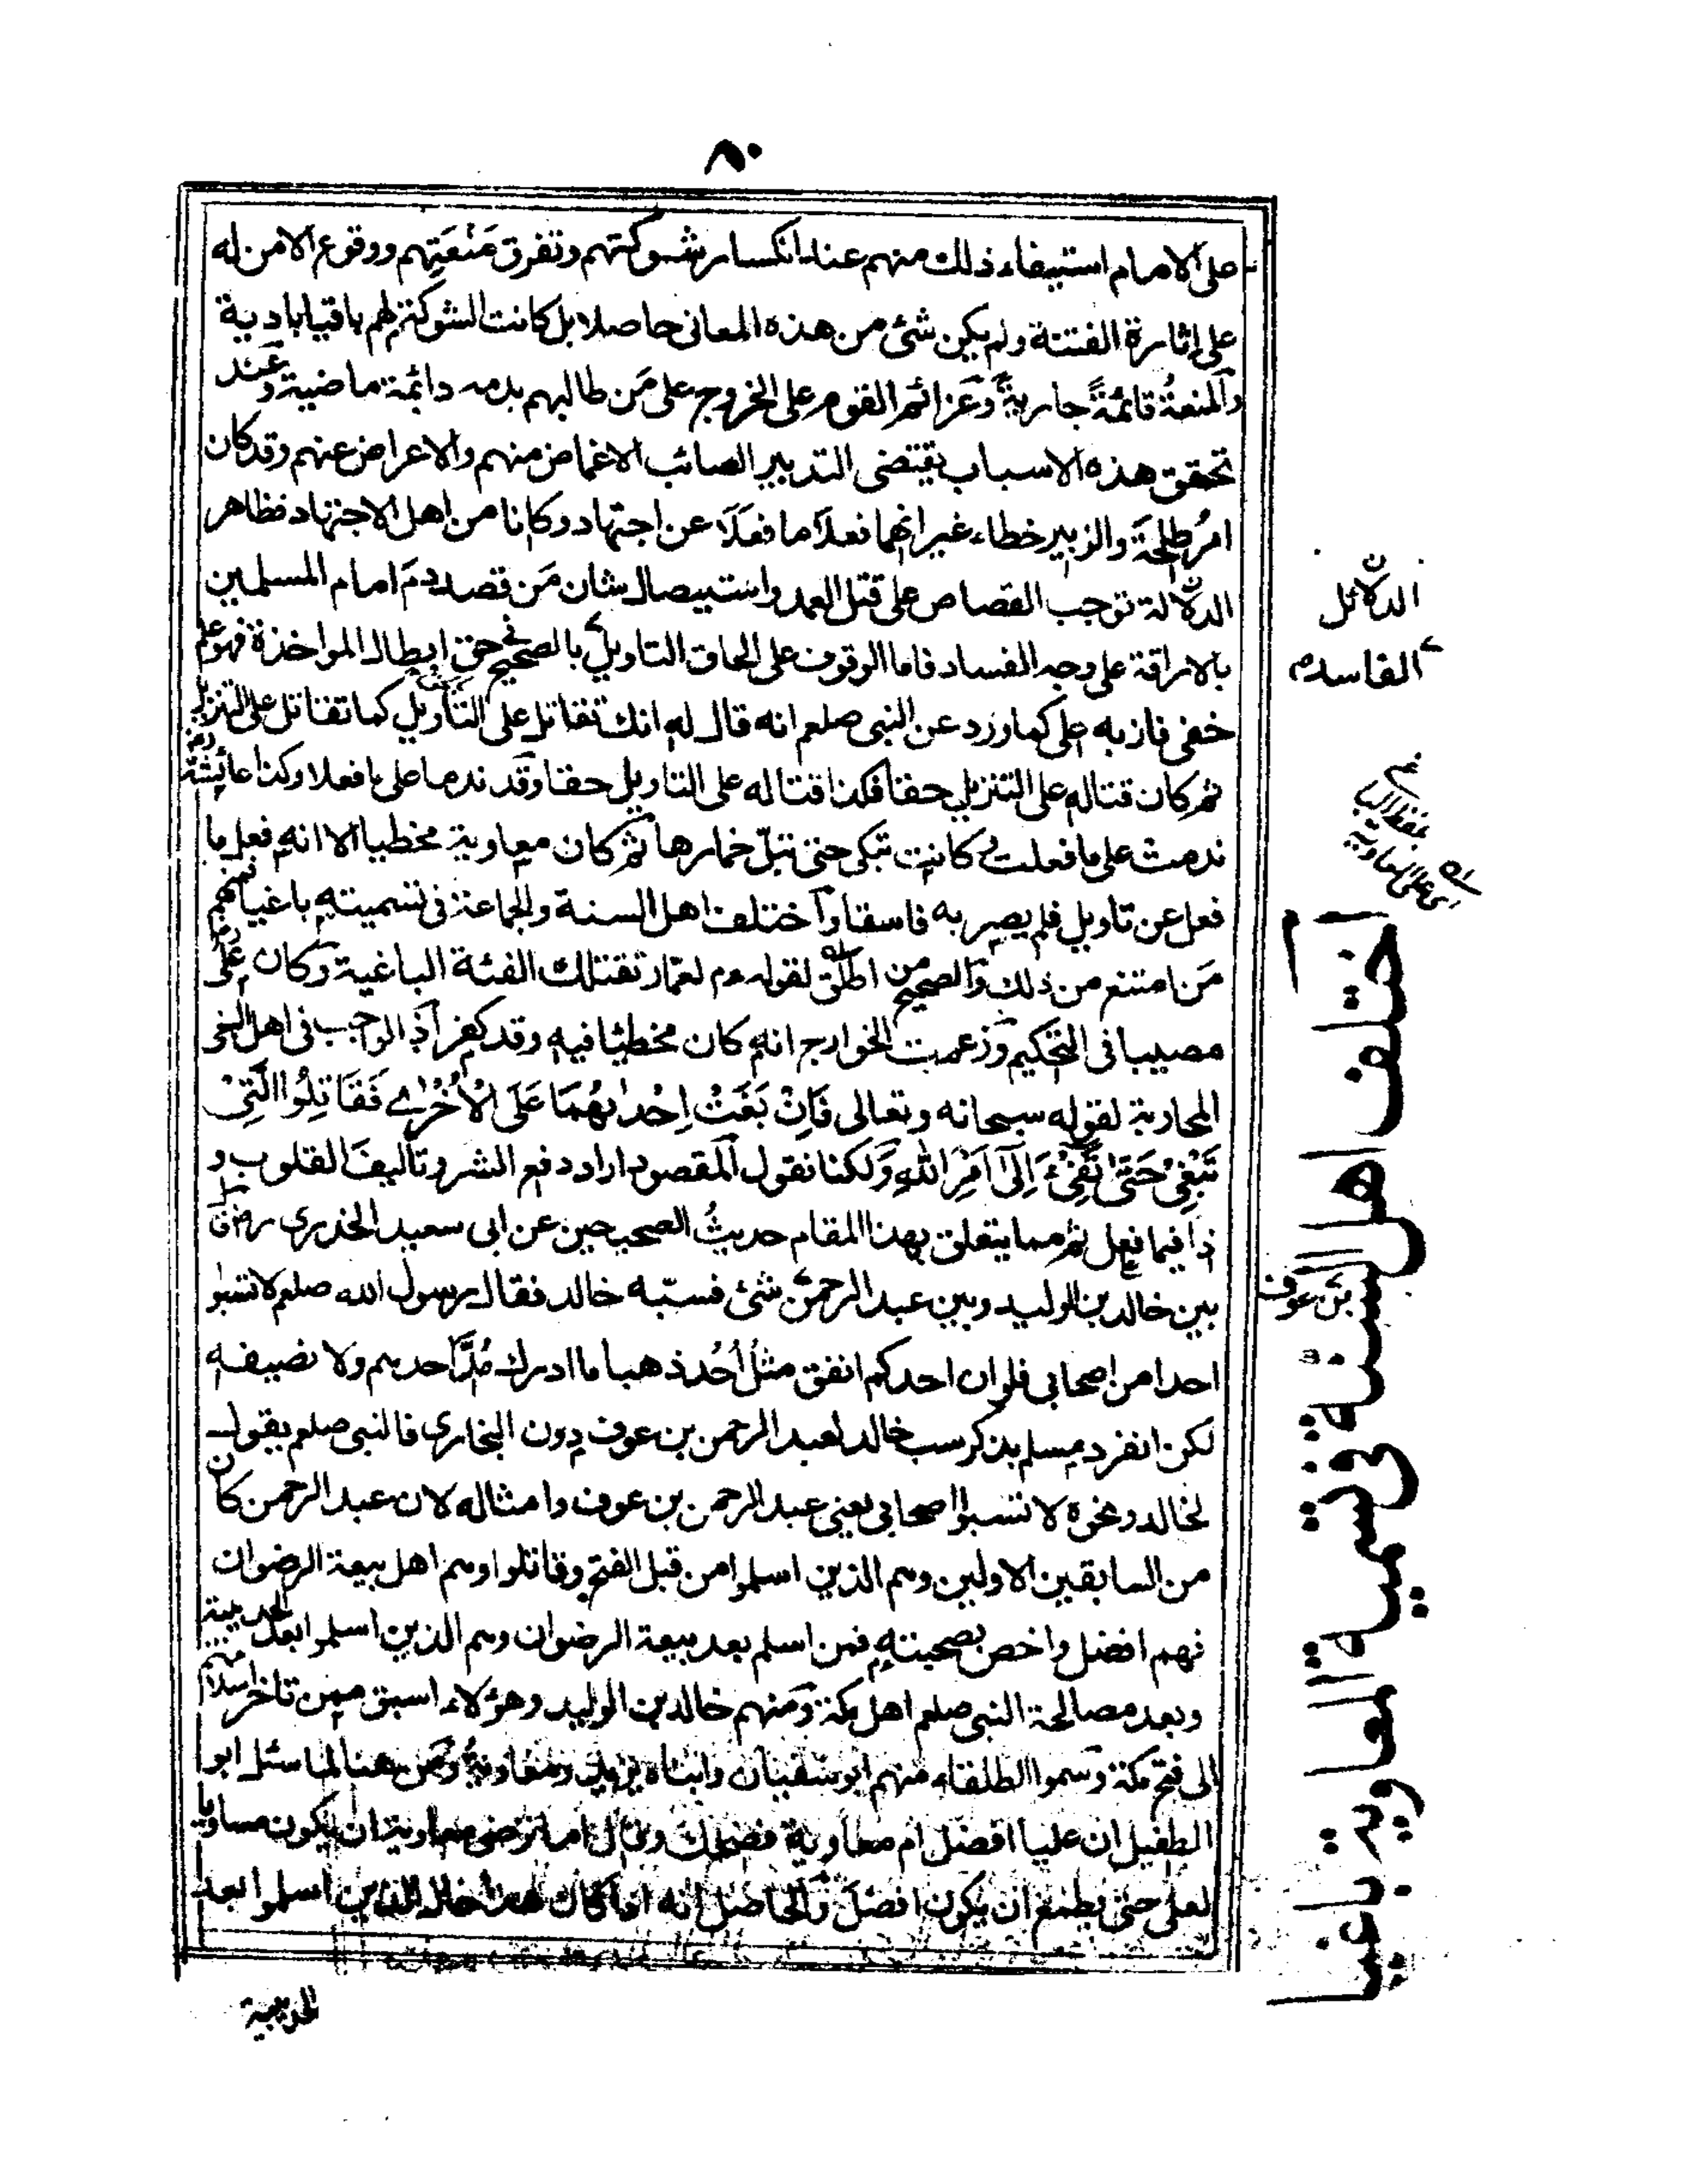 ٨٠
على الامام استيفاء ذلك منهم عند انكسار شوكتهم وتفرق مَنْعَتِهم ووقوع الامن له
على اثارة الفتنة ولم يكن شئ من هذه المعانى حاصلا بل كانت الشوكة لهم باقيا بادية
والمنعةُ قائمةً جاريةً وعَزائم القوم على الخروج على مَن طالبهم بدمه دائمة ماضية وعند
تحقق هذه الاسباب يقتضى التدبير الصائب الاغماض منهم والاعراض عنهم وقد كان
امرُ طلحةَ والزبير خطاء غير انهما فعلَا ما فعلَا عن اجتهاد وكانا من اهل الاجتهاد فظاهر
الدلالة توجب القصاص على قتل العمد واستيصال شان مَن قصد دمَ امام المسلمين
بالاراقة على وجه الفساد فاما الوقوف على الحاق التاويل بالصحيح فى حق ابطال المواخذة فهو علم
خفى فاز به على كما ورد عن النبى صلعم انه قال له انك تقاتل على التأويل كما تقاتل على التنزيل
ثم كان قتاله على التنزيل حقا فكذا قتاله على التاويل حقا وقد ندما على ما فعلا وكذا عائشة رض
ندمت على ما فعلت و كانت تبكى حتى تبلّ خمارها ثم كان معاوية مخطيا الا انه فعل ما
فعل عن تاويل فلم يصر به فاسقا واختلف اهل السنة والجماعة فى تسميته باغيا فمنهم
مَن امتنع من ذلك والصحيح من اطلق لقوله عم لعمار تقتلك الفئة الباغية وكان على رض
مصيبا فى التحكيم وزعمت الخوارج انه كان مخطئا فيه وقد كفر اذ الواجب فى اهل البغى
المحاربة لقوله سبحانه وتعالى فَاِنْ بَغَتْ اِحْدٰىهُمَا عَلَى الْاُخْرٰى فَقَاتِلُوا الَّتِىْ
تَبْغِىْ حَتّٰى تَفِىْءَ اِلٰٓى اَمْرِ اللّٰهِ ولكنا نقول المقصود اراد دفع الشر وتاليفَ القلوب و
ذا فيما فعل ثم مما يتعلق بهذا المقام حديثُ الصحيحين عن ابى سعيد الخدرى رض كان
بين خالد بن الوليد وبين عبد الرحمن شئ فسبّه خالد فقال رسول الله صلعم لا تسبوا
احدا من اصحابى فلو ان احدكم انفق مثلُ اُحُد ذهبا ما ادرك مُدَّ احدهم ولا نصيفه
لكن انفرد مسلم بذكر سب خالد لعبد الرحمن بن عوف دون البخارى فالنبى صلعم يقول
لخالد ونحوه لا تسبوا اصحابى يعنى عبد الرحمن بن عوف وامثاله لان عبد الرحمن كان
من السابقين الاولين وهم الذين اسلموا من قبل الفتح وقاتلوا وهم اهل بيعة الرضوان
فهم افضل واخص بصحبته فمن اسلم بعد بيعة الرضوان وهم الذين اسلموا بعد الحديبية
وبعد مصالحة النبى صلعم اهل مكة ومنهم خالد بن الوليد وهؤلاء اسبق ممن تاخر اسلامهم
الى فتح مكة وسموا الطلقاء منهم ابو سفيان وابناه يزيد ومعاوية ومن هنا لما سئل ابو
الطفيل ان عليا افضل ام معاوية فضحك وقال اما ترضى معاوية ان يكون مساويا
لعلى حتى يطمع ان يكون افضل والحاصل انه اذا كان هذا خالد الذين اسلموا بعد
الحديبية
الدلائل
الفاسده
اختلف اهل السنة فى تسمية المعاوية باغيا
بن عوف